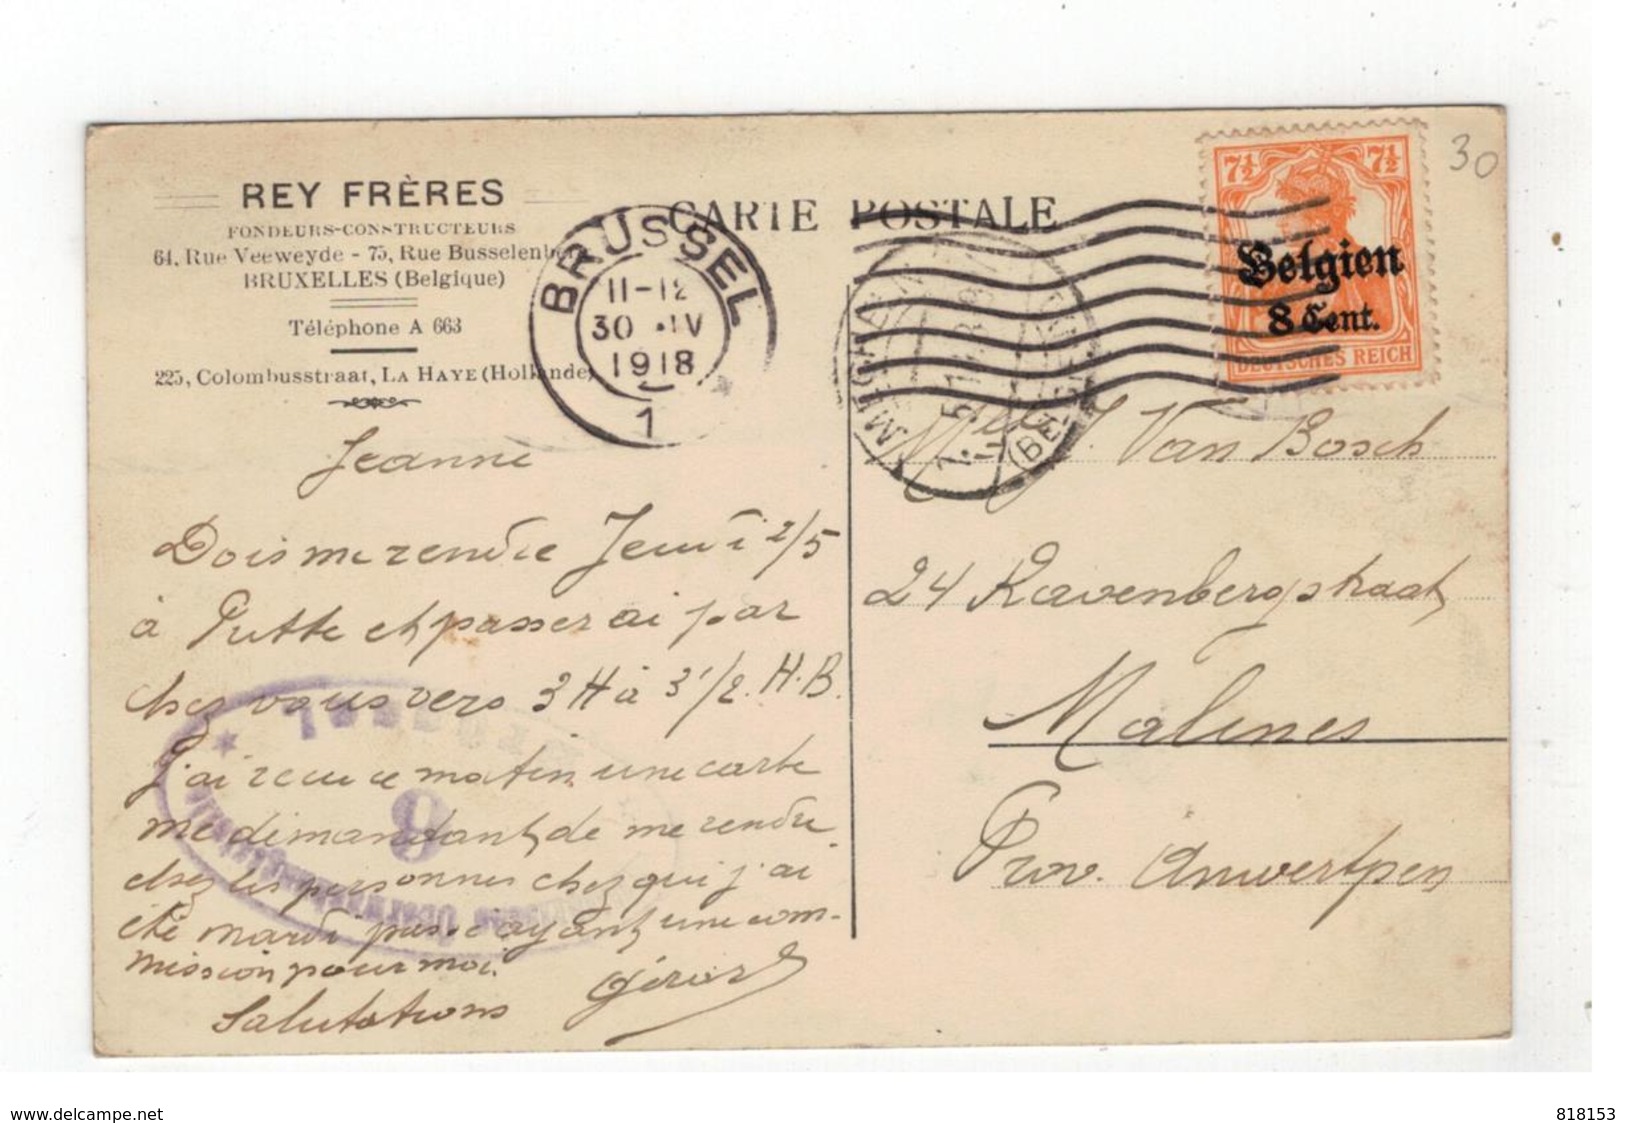 REY FRÈRES
FONDEURS-CONSTRUCTEURS
64, Rue Veeweyde - 75, Rue Busselenberg
BRUXELLES (Belgique)
Téléphone A 663
225, Colombusstraat, LA HAYE (Hollande)
BRUSSEL
11-12
30 .IV
1918
1
CARTE POSTALE
MECHELN
(BELGIEN)
7½ 7½
Belgien
8 Cent.
DEUTSCHES REICH
30
Jeanne
Dois me rendre Jeudi 2/5
à Putte et passerai par
chez vous vers 3 H à 3 1/2. H.B.
J'ai recu ce matin une carte
me demandant de me rendre
chez les personnes chez qui j'ai
été mardi passé ayant une com-
mission pour moi.
Salutations Gérard
Melle J. Van Bosch
24 Ravenbergstraat
Malines
Prov. Anwerpen
8
www.delcampe.net
818153